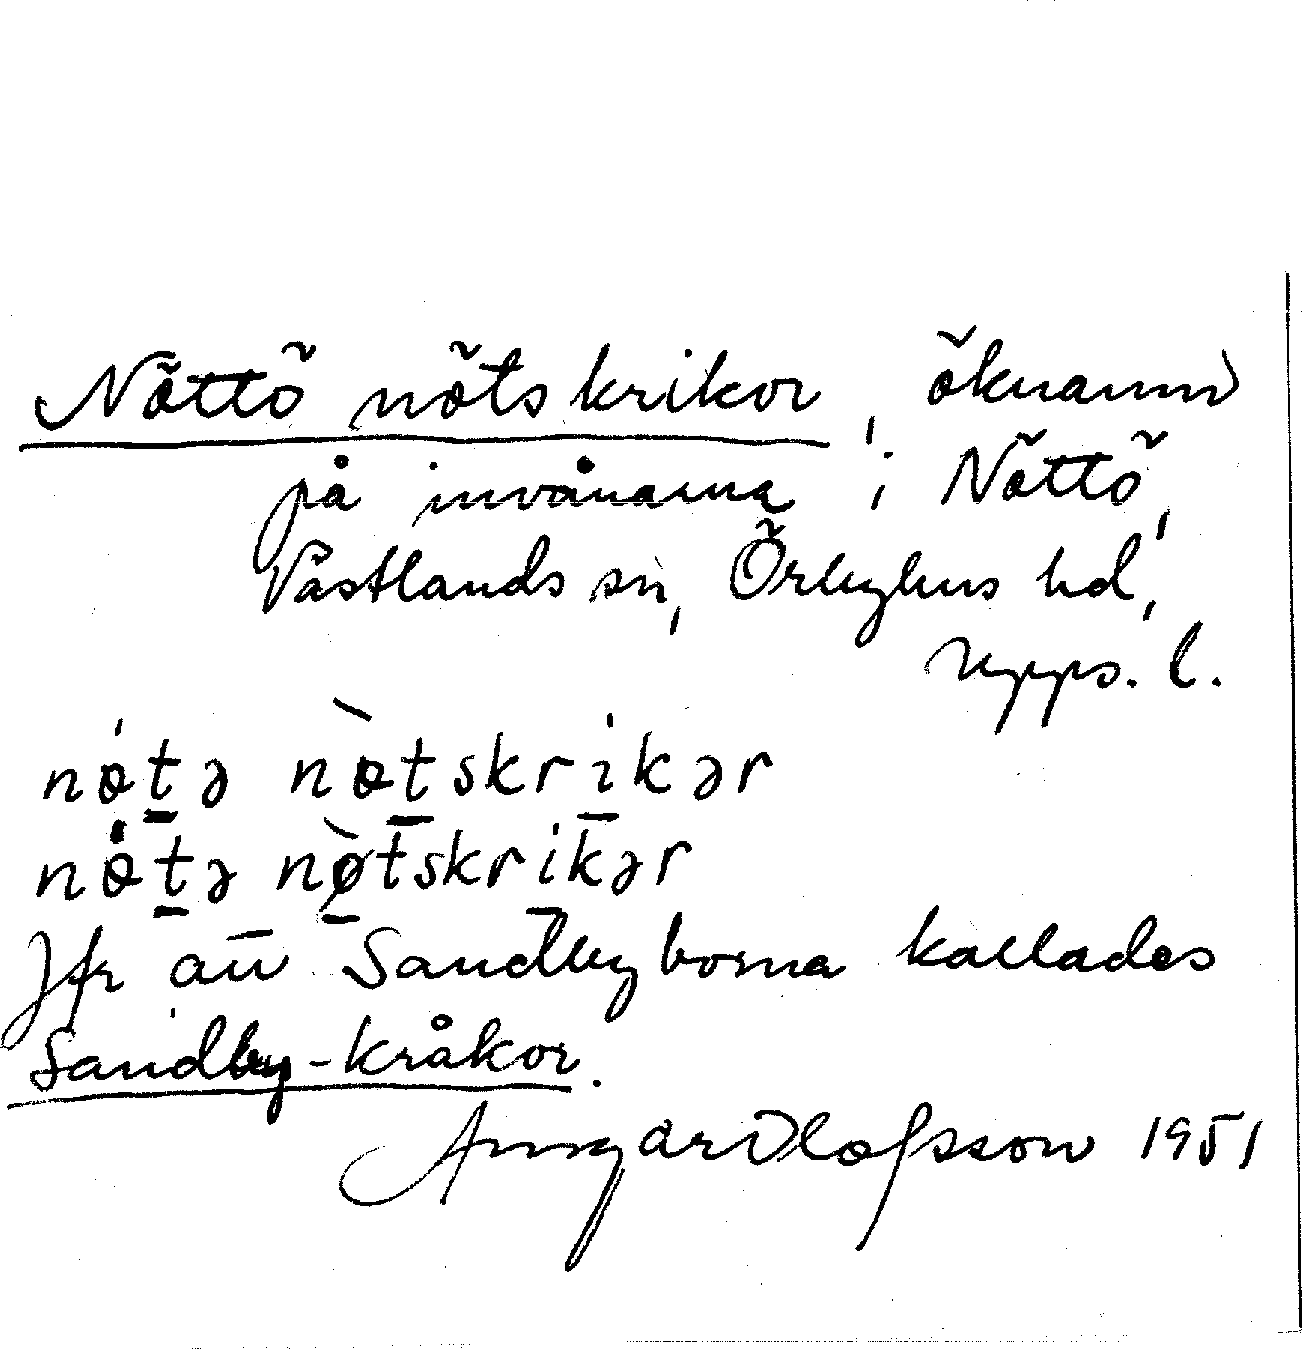 Nöttö nötskrikor, öknamn
på invånarna i Nöttö,
Västlands sn, Örbyhus hd,
Upps. l.
nǿtə nø̀tskrikər
nǿtə nø̀tskrikər
Jfr att Sandbyborna kallades
Sandby-kråkor.
Olofsson 1951